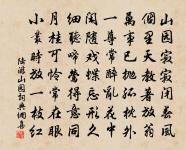 山園寂寂閉春風
個是天教著放翁
萬事已拋孤枕外
一尊常醉亂花中
閑隨戲蝶忘形久
細聽啼鶯得意同
月桂可憐常在眼
小叢時放一枝紅
陸游山園詞典網書